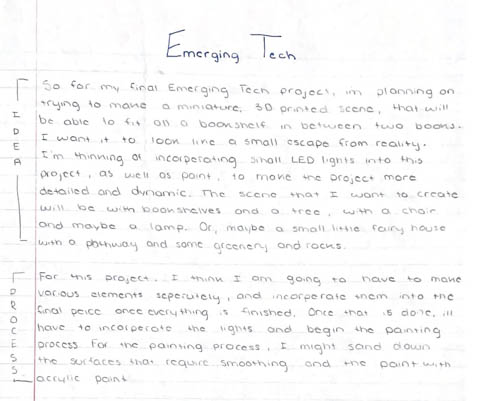 Emerging Tech
IDEA
So for my final Emerging Tech project, im planning on
trying to make a miniature, 3D printed scene, that will
be able to fit on a bookshelf in between two books.
I want it to look like a small escape from reality.
I'm thinking of incorperating small LED lights into this
project, as well as paint, to make the project more
detailed and dynamic. The scene that I want to create
will be with bookshelves and a tree, with a chair
and maybe a lamp. Or, maybe a small little fairy house
with a pathway and some greenery and rocks.
PROCESS
For this project, I think I am going to have to make
various elements seperately, and incorperate them into the
final peice once everything is finished. Once that is done, ill
have to incorperate the lights and begin the painting
process. For the painting process, I might sand down
the surfaces that require smoothing and the paint with
acrylic paint